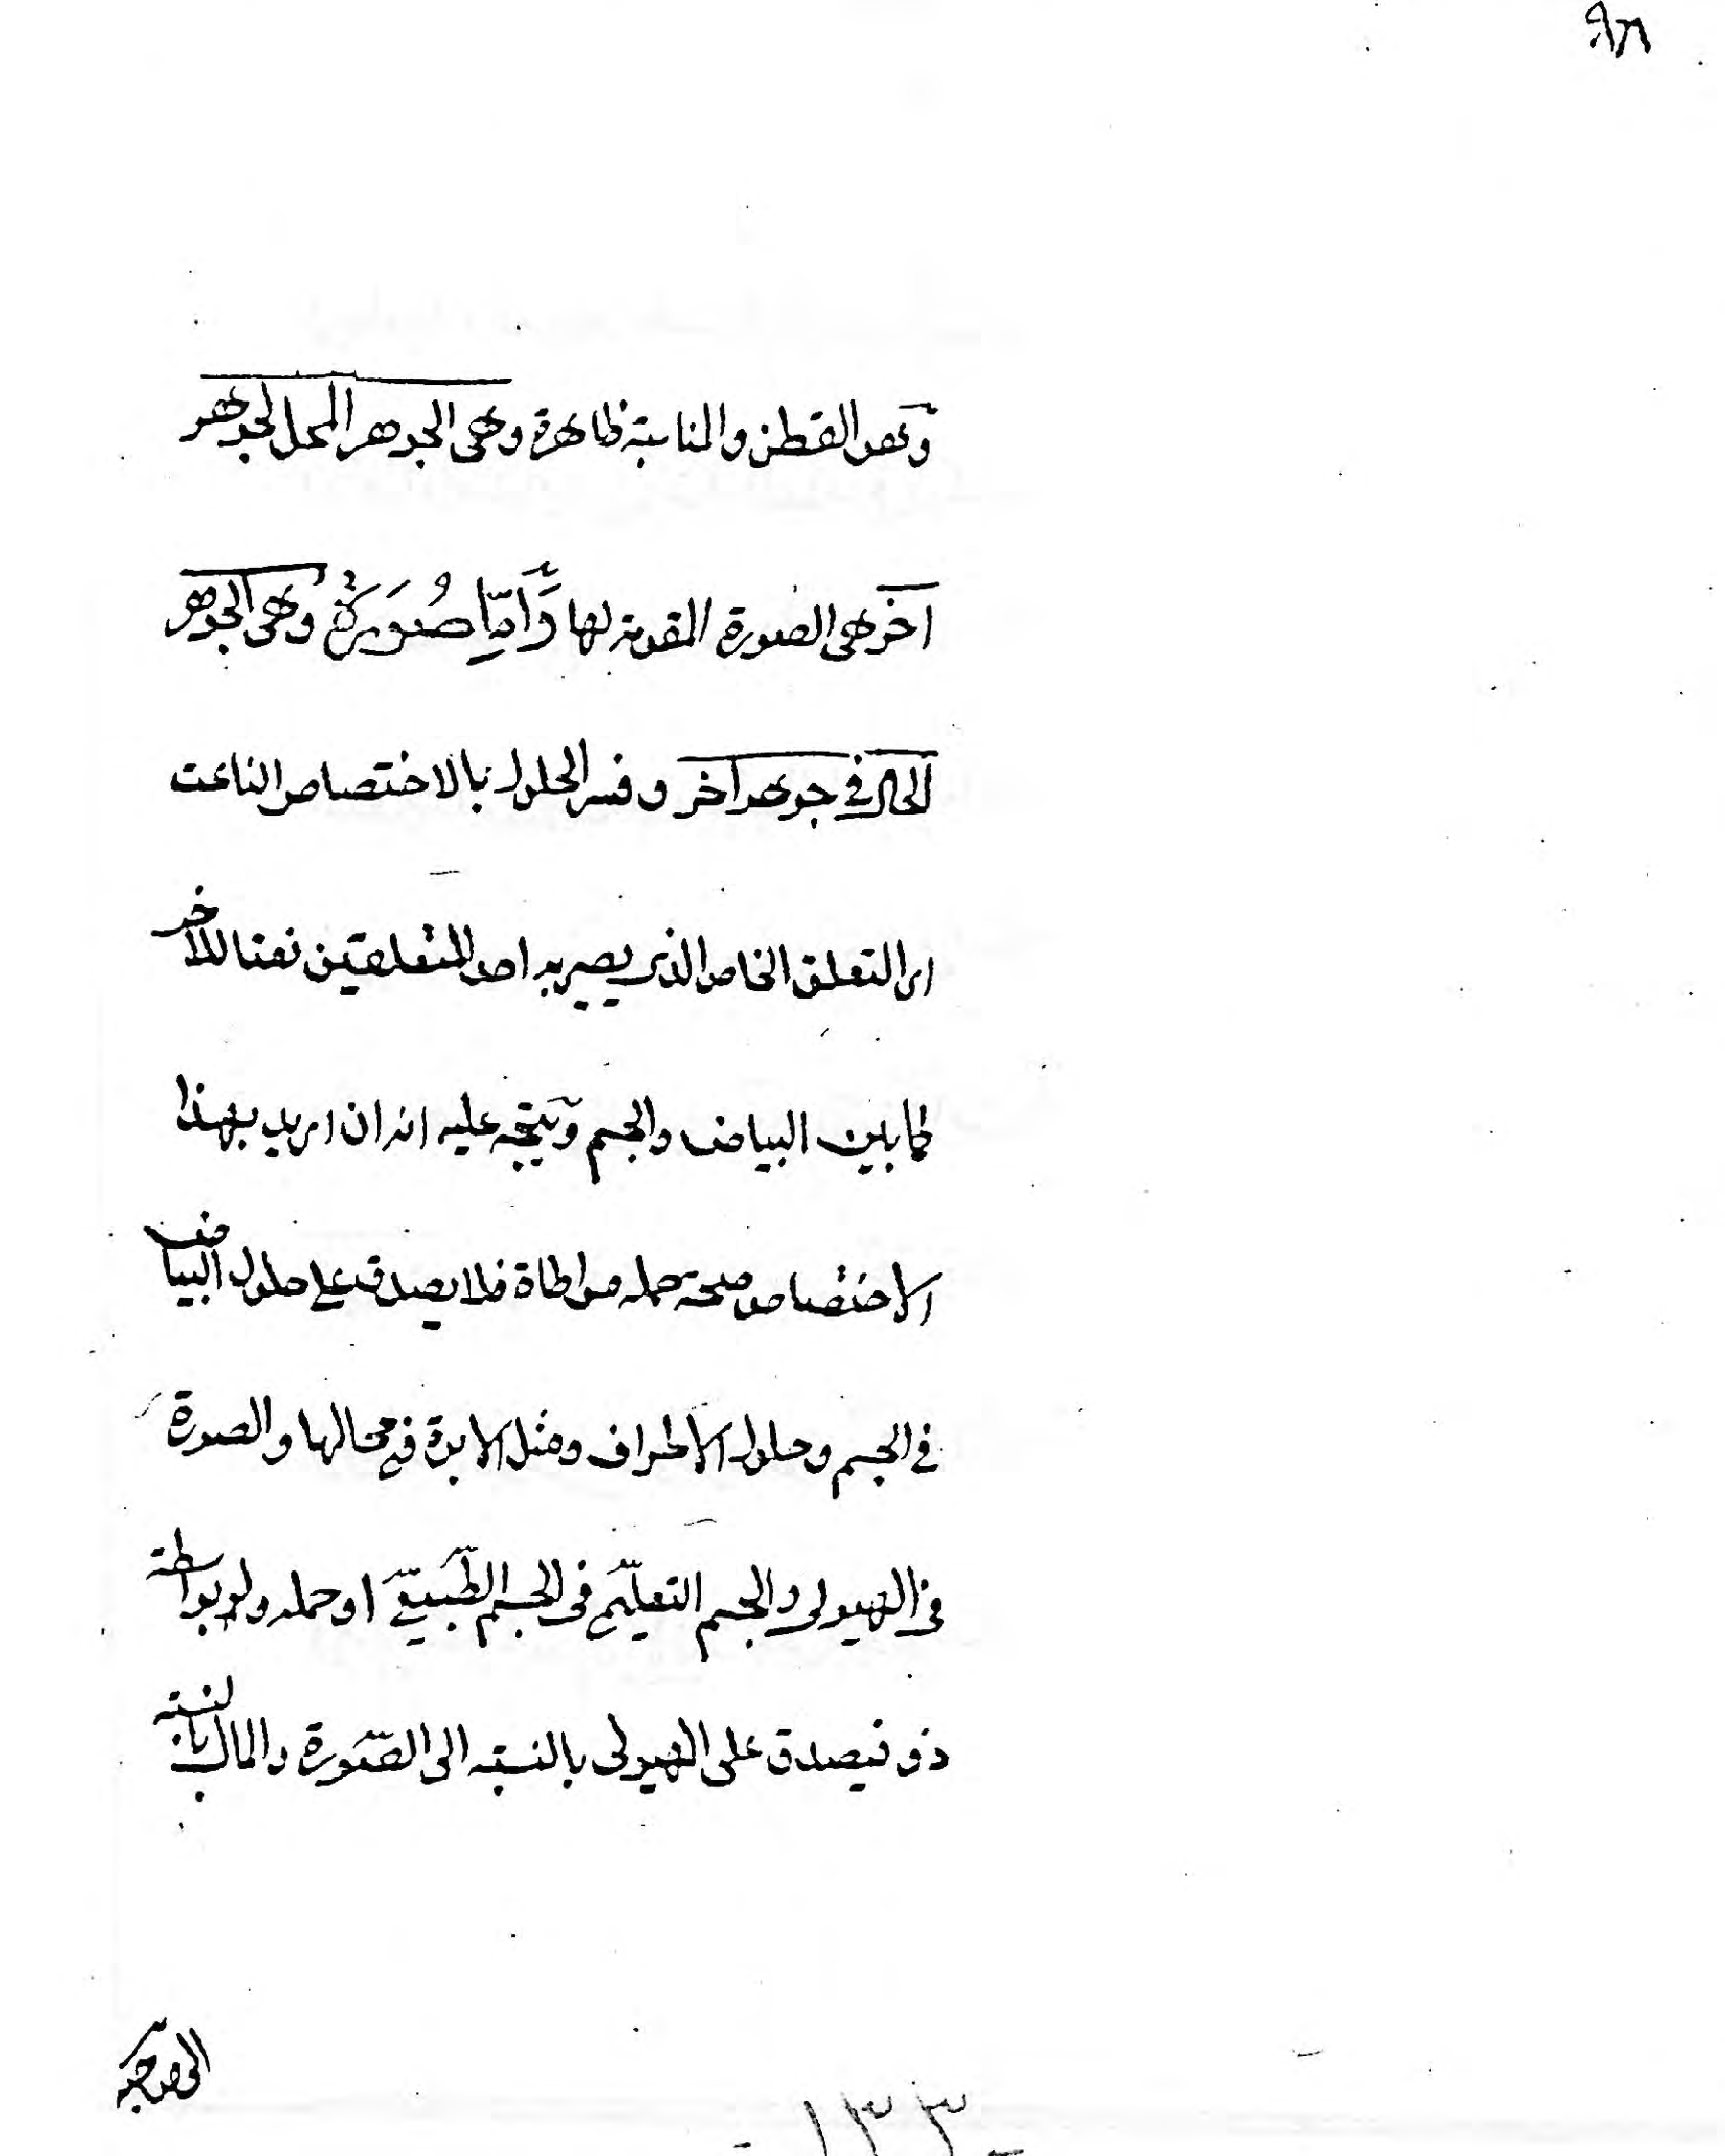 وهو القطن والمناسبة ظاهرة وهى الجوهر المحل لجوهر
آخر هى الصورة المقومة لها وَّامّا صُوَرَةٌ وهى الجوهر
الحال فى جوهر آخر وفسر الحلول بالاختصاص الناعت
اى التعلق الخاص الذى يصير به احد المتعلقين نعتا للآخر
كما بين البياض والجسم ويتجه عليه انه ان اريد بهذا
الاختصاص صحة حمله مواطاة فلا يصدق على حلول البياض
فى الجسم وحلول الاطراف ومثل الابوة فى محالها والصورة
فى الهيولى والجسم التعليمّى فى الجسم الطّبيعىّ او حمله ولو بواسطة
ذو فيصدق على الهيولى بالنسبة الى الصّورة والمال بالنسبة
الى صاحبه
١٣٣